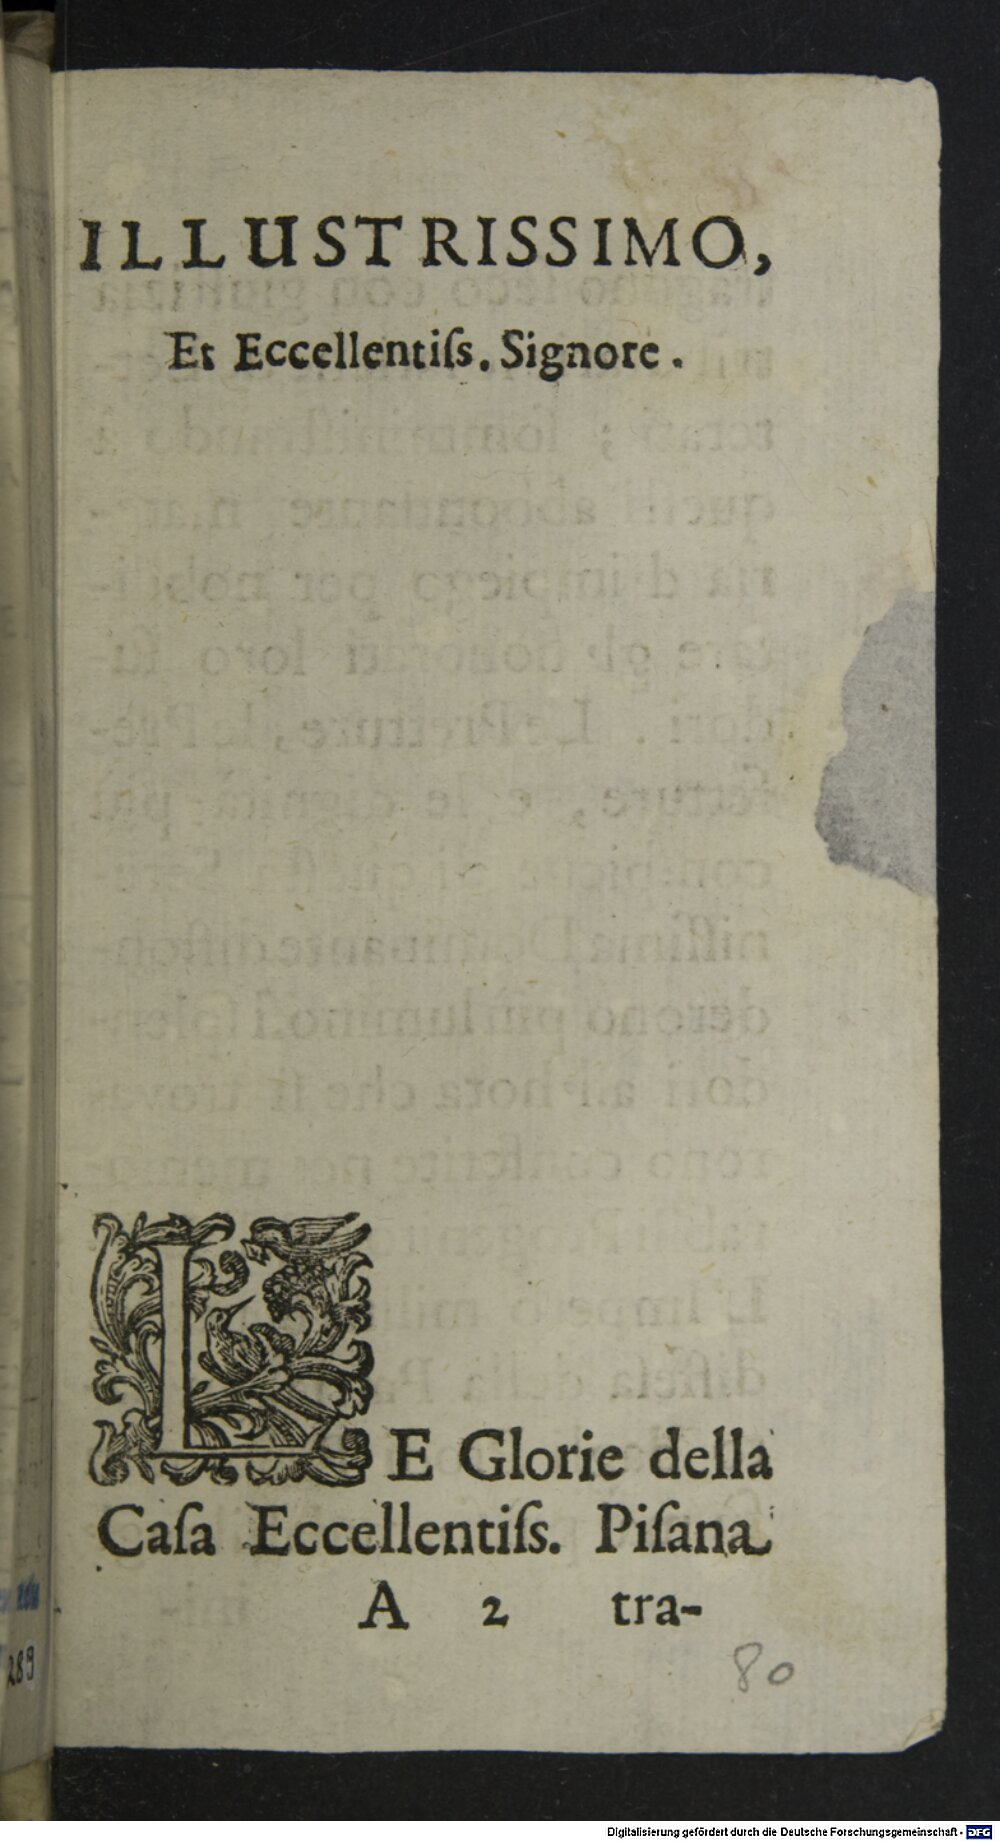 ILLUSTRISSIMO,
Et Eccellentiſs. Signore.
LE Glorie della
Caſa Eccellentiſs. Piſana
A 2 tra-
80
289
Digitalisierung gefördert durch die Deutsche Forschungsgemeinschaft - DFG